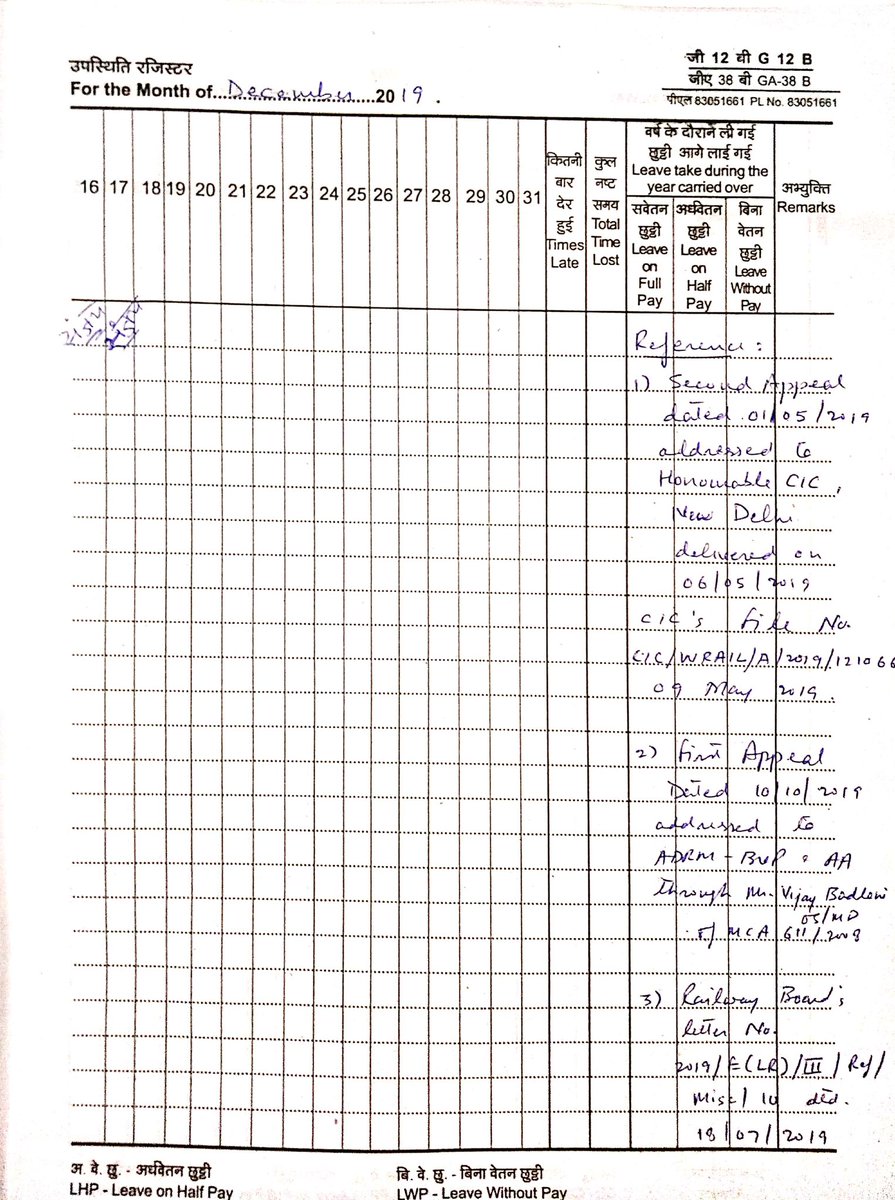 उपस्थिति रजिस्टर
For the Month of December 2019.
जी 12 बी G 12 B
जीए 38 बी GA-38 B
पीएल 83051661 PL No. 83051661
16 17 18 19 20 21 22 23 24 25 26 27 28 29 30 31
कितनी बार देर हुई Times Late
कुल नष्ट समय Total Time Lost
वर्ष के दौरान ली गई
छुट्टी आगे लाई गई
Leave take during the
year carried over
सवेतन छुट्टी Leave on Full Pay
अर्धवेतन छुट्टी Leave on Half Pay
बिना वेतन छुट्टी Leave Without Pay
अभ्युक्ति
Remarks
Reference:
1) Second Appeal
dated 01/05/2019
addressed to
Honourable CIC,
New Delhi
delivered on
06/05/2019
CIC's File No.
CIC/WRAIL/A/2019/121066
09 May 2019.
2) First Appeal
Dated 10/10/2019
addressed to
ADRM - BVP & AA
through Mr. Vijay Badlani
OS/MD
MCA 611/2009
3) Railway Board's
letter No.
2019/E(LR)/III/Ref/
Misc/10 dtd.
18/07/2019
अ. वे. छु. - अर्धवेतन छुट्टी
LHP - Leave on Half Pay
बि. वे. छु. - बिना वेतन छुट्टी
LWP - Leave Without Pay